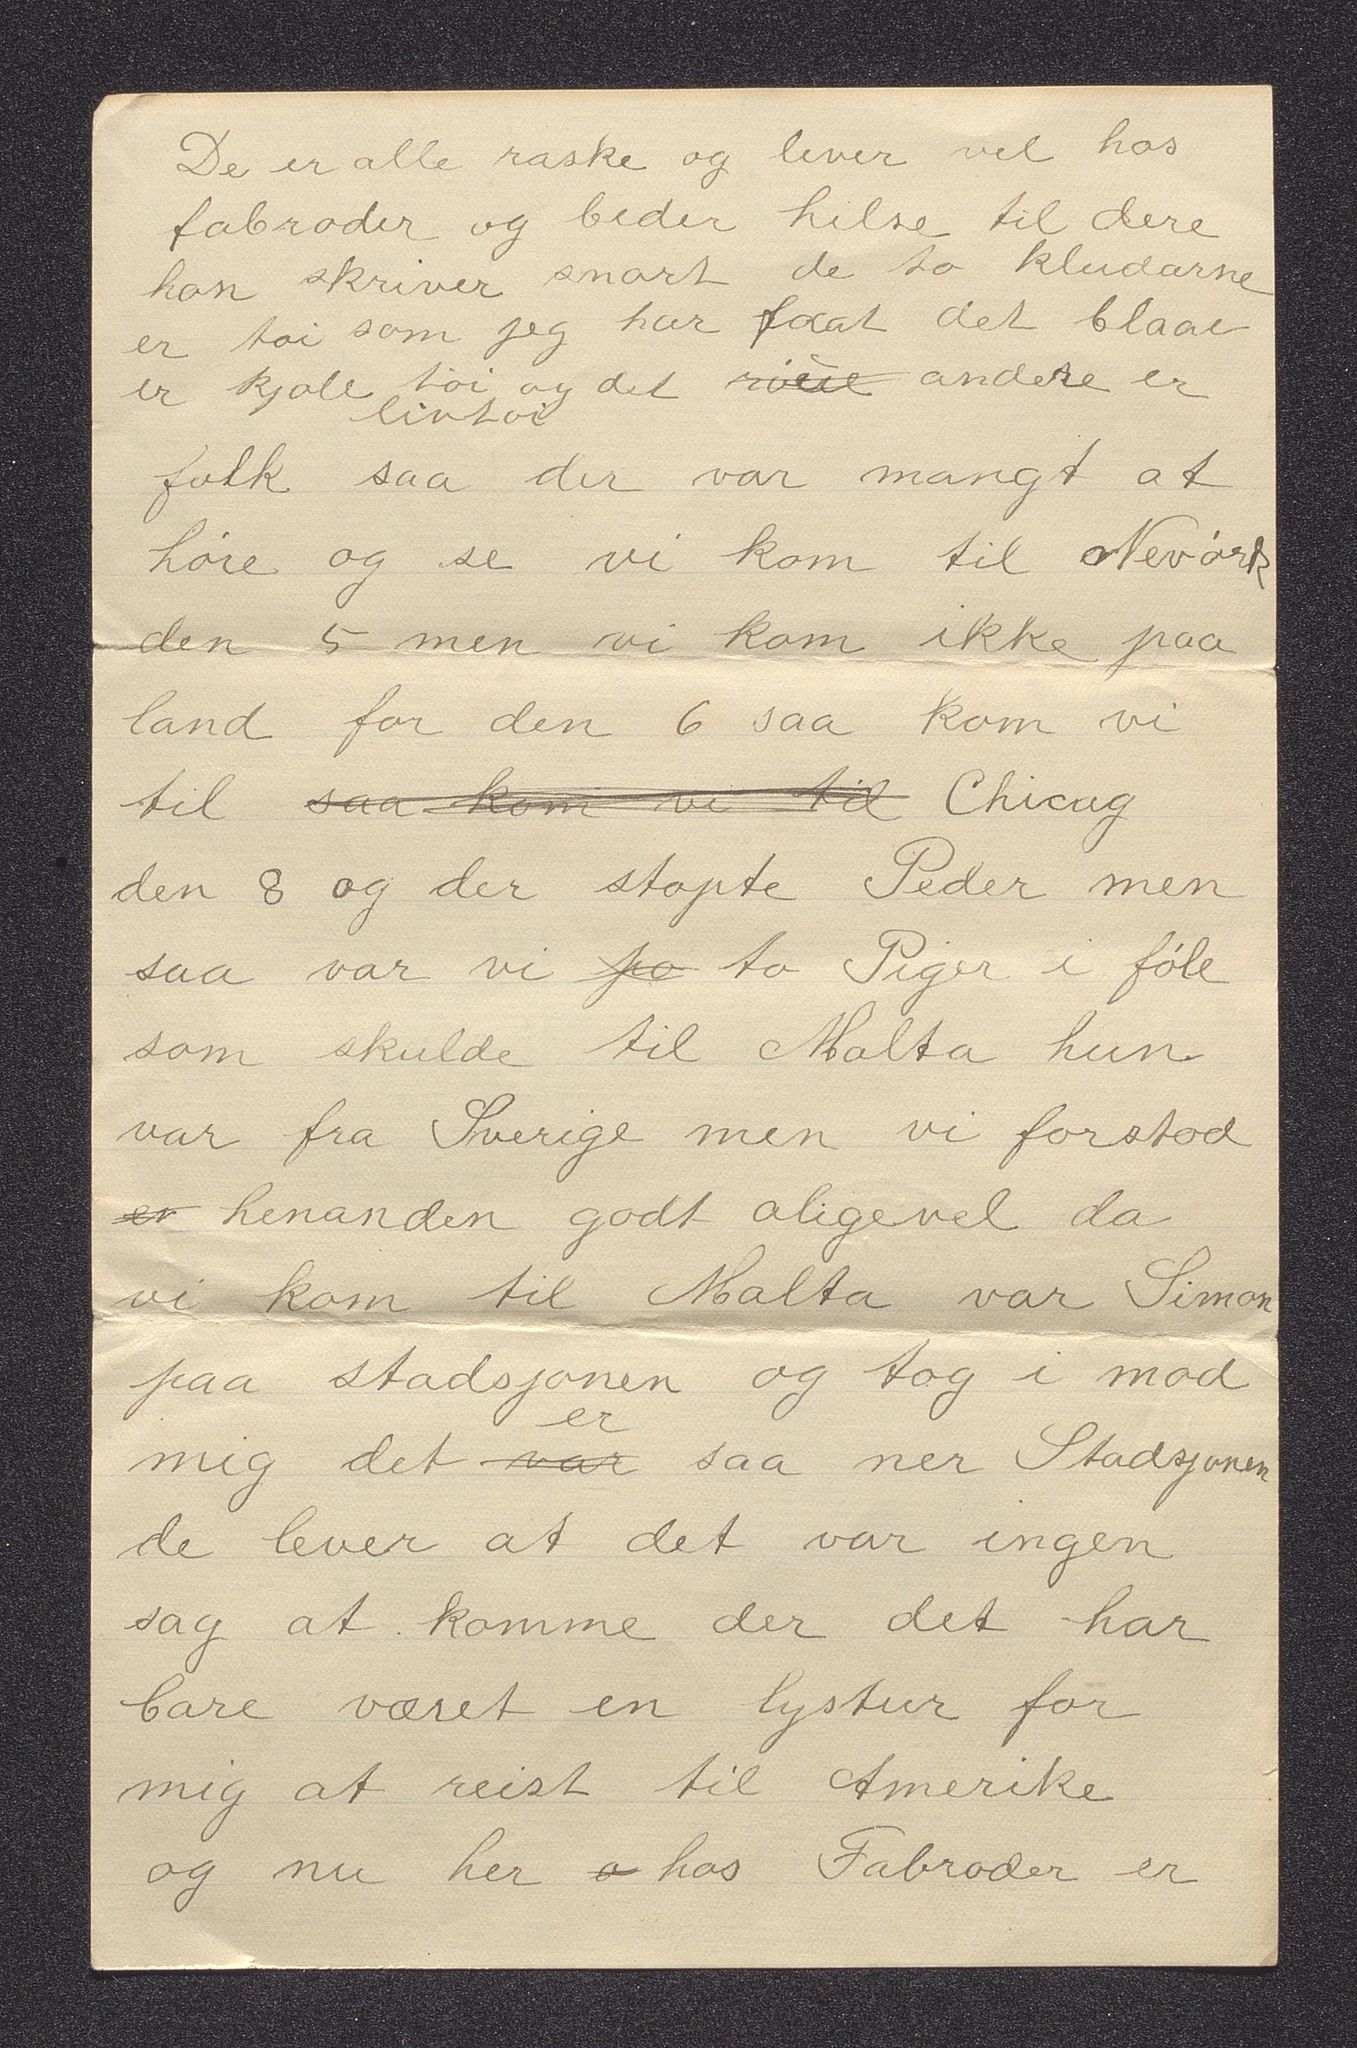 De er alle raske og lever vel hos
fabroder og beder hilse til dere
han skriver snart de to kludarne
er toi som jeg har faat det blaae
er kjole töi og det andere er
livtoi
folk saa der var mangt at
höre og se vi kom til Nevörk
den 5 men vi kom ikke paa
land for den 6 saa kom vi
til saa kom vi til Chicag
den 8 og der stopte Peder men
saa var vi po to Piger i föle
som skulde til Malta hun
var fra Sverige men vi forstod
er henanden godt aligevel da
vi kom til Malta var Simon
paa stadsjonen og tog i mod
er
mig det var saa ner Stadsjonen
de lever at det var ingen
sag at komme der det har
bare været en lystur for
mig at reist til Amerike
og nu her o hos Fabroder er